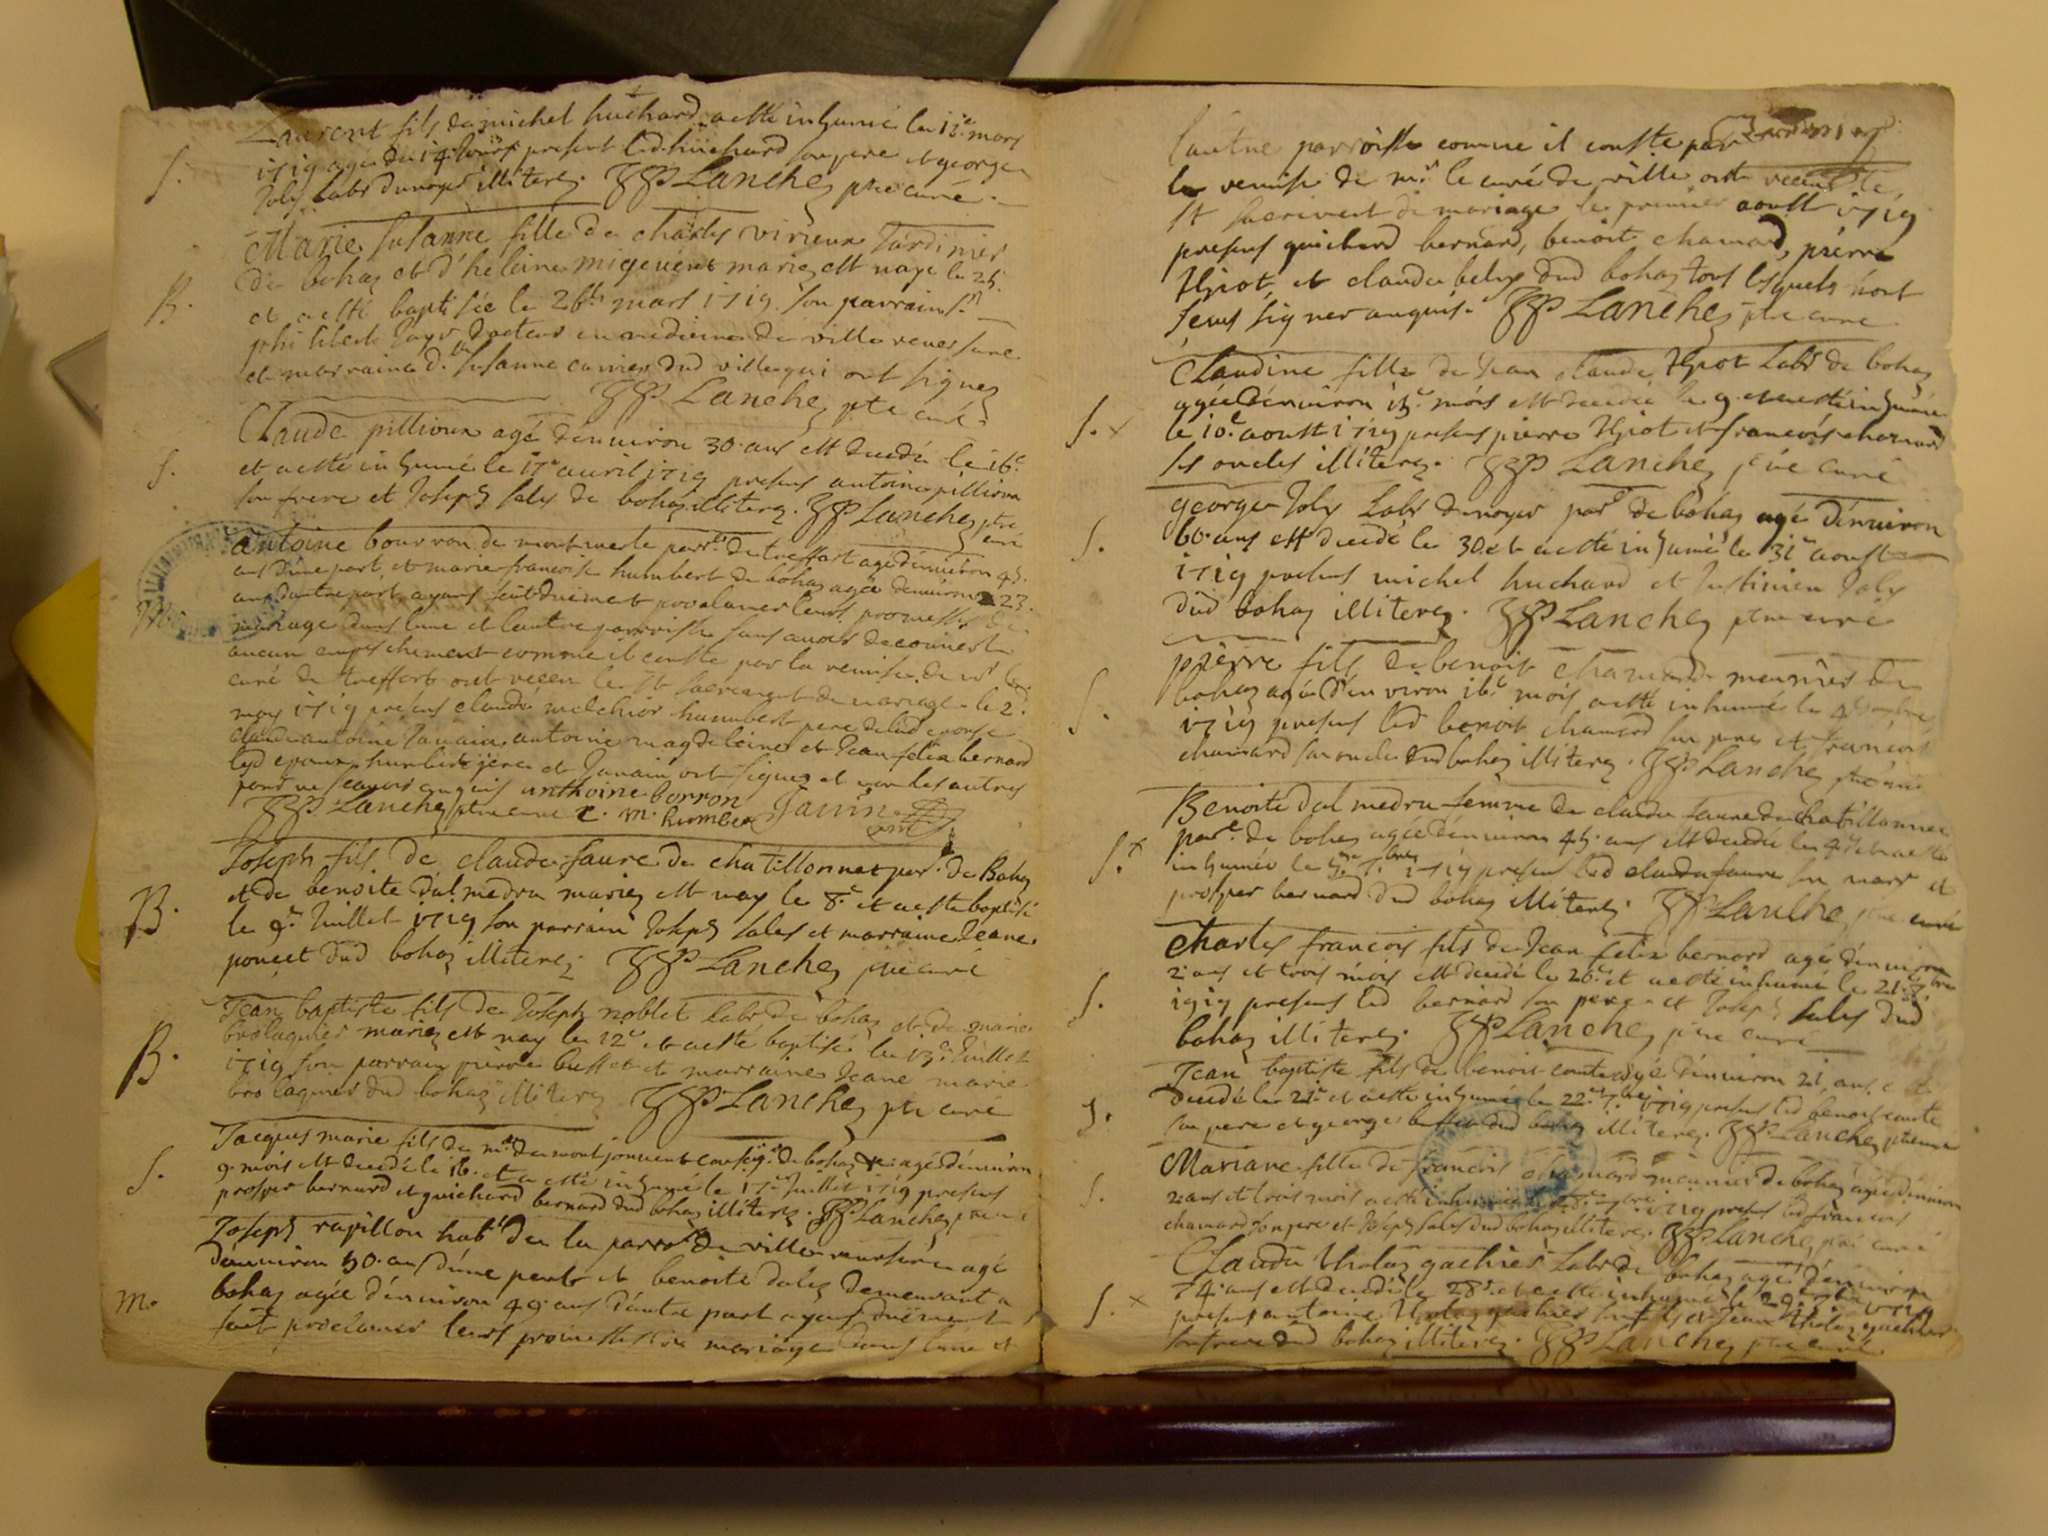 Laurent fils de michel huchard a esté inhumé le 12e mars
1719 agé de 14 jours present led. huchard son pere et george
S.
Joly Labr du noyer illiterez. Lanchez ptre curé
Marie Susanne fille de charles virieux Jardinier
de bohaz et d'heleine migevent mariez est nayé le 25.
B.
et a esté baptisée le 26e mars 1719. son parrain Sr
philibert docteur en medicine de ville reversure
et marraine de Susanne dud ville qui ont signez
Lanchez ptre curé
Claude pillioux agé d'environ 30. ans est decedé le 16e
S.
et a esté inhumé le 17e avril 1719 presens antoine pillioux
son frere et Joseph sales de bohaz illiterez. Lanchez ptre
curé
antoine bourron de montmerle parr. de treffort agé d'environ 45.
ans d'une part et marie francoise humbert de bohaz agée d'environ 23.
ans d'autre part ayans fait duëment proclamer leurs promesses de
mariage dans l'une et l'autre parroisse sans avoir decouvert
aucun empeschement comme il conste par la remise de mr le
curé de treffort ont receu le St sacrement de mariage le 2e
may 1719 presens claude melchior humbert pere de lad epouse
claude antoine Janain, antoine magdeleine et Jean felix bernard
led epoux, humbert pere et Janain ont signez et non les autres
pour ne scavoir enquis anthoine borron
Lanchez ptre curé c. m. humber Janin
Joseph fils de claude faure de chatillonnet par. de Bohaz
et de benoite dalmedra mariez est nay le 8e et a esté baptisé
B.
le 9e Juillet 1719 son parrain Joseph sales et marraine Jeane
poncet dud bohaz illiterez. Lanchez ptre curé
Jean baptiste fils de Joseph noblet Labr de bohaz et de marie
brolaquier mariez est nay le 12e et a esté baptisé le 13e Juillet
B.
1719 son parrain pierre buffet et marraine Jeane marie
brolaquier dud bohaz illiterez Lanchez ptre curé
Jacques marie fils de mr de montjouvent de bohaz agé d'environ
S.
9. mois est decedé le 16. et a esté inhumé le 17e Juillet 1719 presens
prosper bernard et guichard bernard dud bohaz illiterez. Lanchez ptre
Joseph ravillon habt de la parroisse de ville reversure agé
d'environ 50. ans d'une part et benoite dalez demeurant a
M.
bohaz agée d'environ 49. ans d'autre part ayans duëment
fait proclamer leurs promesses de mariage dans l'une et
l'autre parroisse comme il conste par
la remise de mr le curé de ville ont receu le
St sacrement de mariage le premier aoust 1719
presens guichard bernard, benoit chanard, pierre
et claude dud bohaz tous lesquels n'ont
sceus signer enquis. Lanchez ptre curé
Claudine fille de Jean claude Labr de bohaz
agée d'environ mois est decedée le 9. et a esté inhumée
S. x
le 10e aoust 1719 presens pierre et francois chanard
ses oncles illiterez. Lanchez ptre curé
george Joly Labr du noyer par. de bohaz agé d'environ
S.
60. ans est decedé le 30. et a esté inhumé le 31e aoust
1719 presens michel huchard et Justinien Joly
dud bohaz illiterez. Lanchez ptre curé
pierre fils de benoit chanard meunier de
bohaz agé d'environ 16e mois a esté inhumé le 4e
S.
1719 presens led benoit chanard son pere et francois
chanard son oncle dud bohaz illiterez. Lanchez ptre curé
Benoite dalmedra femme de claude faure de chatillonnet
parr. de bohaz agée d'environ 45. ans est decedée le 4e et a esté
S. x
inhumée le 5e 7bre 1719 presens led claude faure son mary et
prosper bernard dud bohaz illiterez. Lanchez ptre curé
Charles francois fils de Jean felix bernard agé d'environ
2. ans et trois mois est decedé le 20e et a esté inhumé le 21e 7bre
S.
1719 presens led bernard son pere et Joseph sales dud
bohaz illiterez. Lanchez ptre curé
Jean baptiste fils de benoit conte agé d'environ 21 ans est
decedé le 21e et a esté inhumé le 22e 7bre 1719 presens led benoit conte
S.
son pere et george buffet dud bohaz illiterez. Lanchez ptre curé
Mariane fille de francois chanard meunier de bohaz agée d'environ
S.
2. ans et trois mois a esté inhumée 7bre 1719 presens led francois
chanard son pere et Joseph sales dud bohaz illiterez. Lanchez ptre curé
Claude gachier Labr de bohaz agé d'environ
74. ans est decedé le 28e et a esté inhumé le 29e 7bre 1719
S. x
presens antoine gachier son fils et Jean gachier
son frere dud bohaz illiterez. Lanchez ptre curé